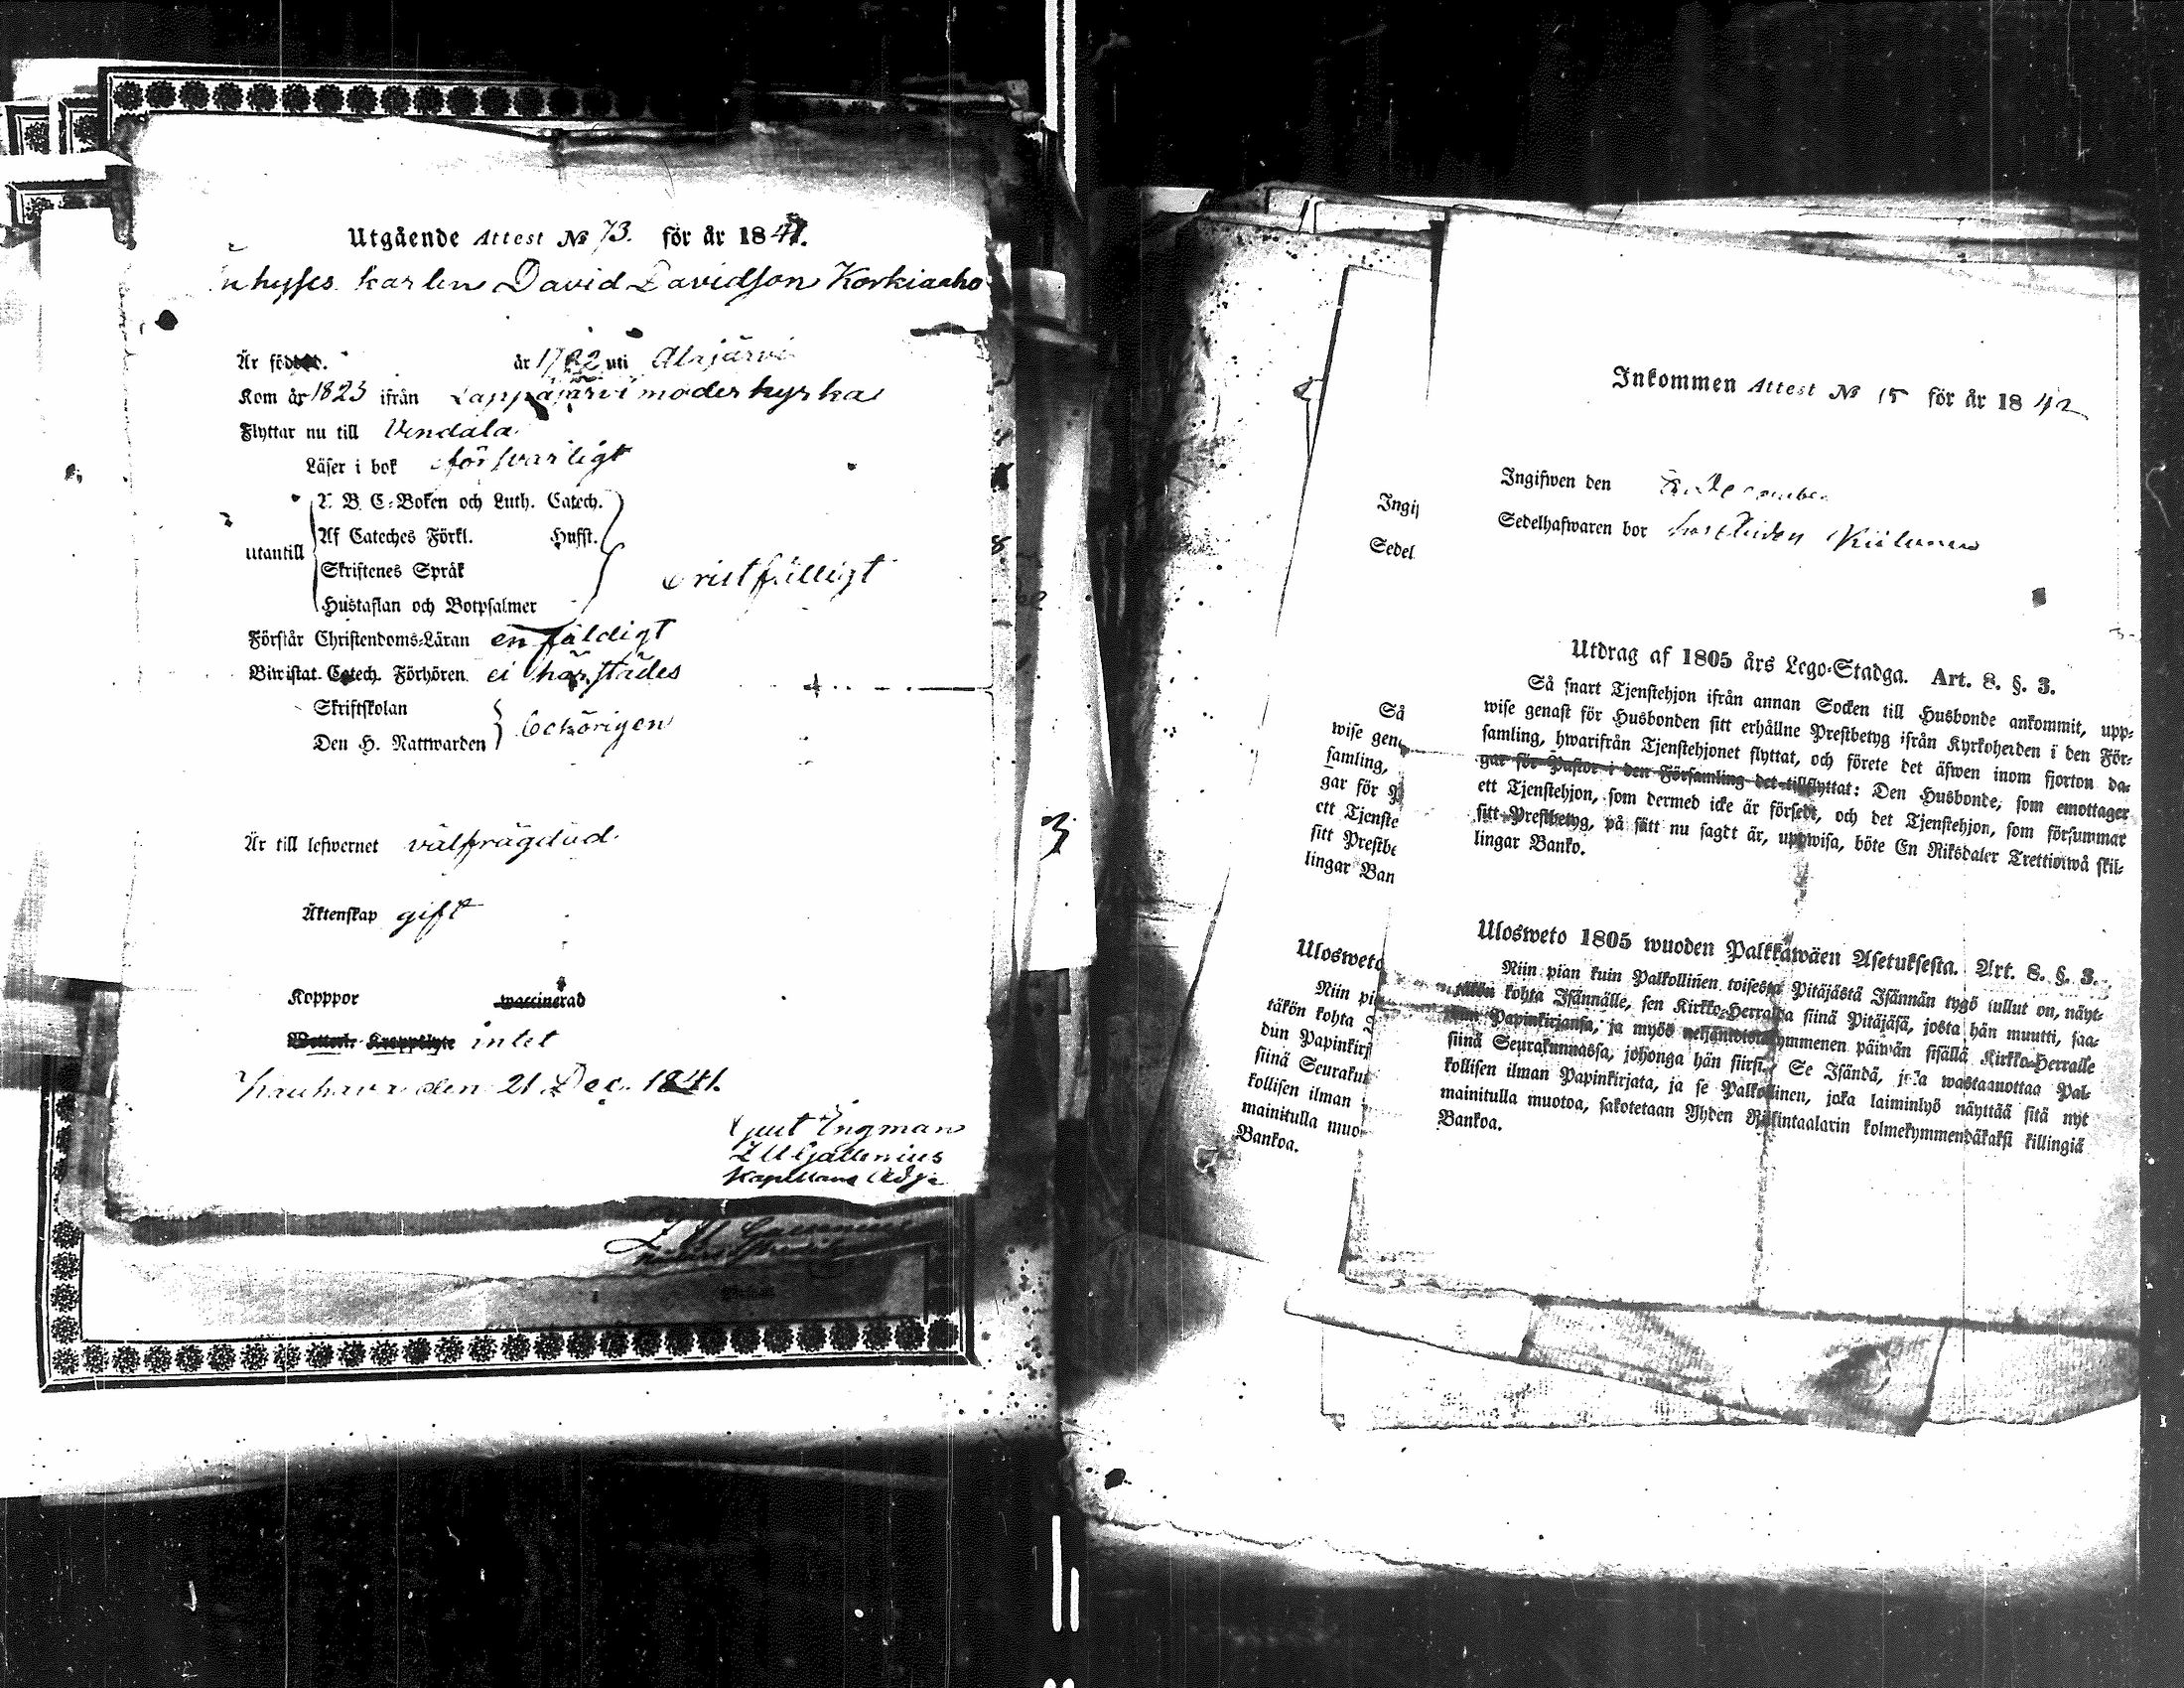 Utgående Attest № 73. för år 1841.
Inhyses karlen David Davidson Korkiaaho
Är född. år 1782 uti Alajärvi
Kom år 1823 ifrån Lappajärvi moderkyrka
Flyttar nu till Vindala
Läser i bok försvarligt
A. B. C-Boken och Luth. Catech.
Af Cateches Förkl. Husst.
utantill
Skriftenes Språk
bristfälligt
Hustaflan och Botpsalmer
Förstår Christendoms-Läran enfäldigt
Biwistat Catech. Förhören ei härstädes
Skriftskolan
Den H. Nattwarden behörigen
Är till lefwernet välfrägdad
Äktenskap gift
Kopppor vaccinerad
intet
Kauhava den 21 Dec. 1841.
Ingman
Kapellans Adj.
3
Inkommen Attest № 15 för år 1842
Ingifwen den December
Sedelhafwaren bor
Utdrag af 1805 års Lego-Stadga. Art. 8. §. 3.
Så snart Tjenstehjon ifrån annan Socken till Husbonde ankommit, upp-
wise genast för Husbonden sitt erhållne Prestbetyg ifrån Kyrkoherden i den För-
samling, hwarifrån Tjenstehjonet flyttat, och förete det äfwen inom fjorton da-
gar för Pastor i den Församling det tillflyttat: Den Husbonde, som emottager
ett Tjenstehjon, som dermed icke är försedt, och det Tjenstehjon, som försummar
sitt Prestbetyg, på sätt nu sagdt är, uppwisa, böte En Riksdaler Trettiotwå skil-
lingar Banko.
Ulosweto 1805 wuoden Palkkawäen Asetuksesta. Art. 8. §. 3.
Niin pian kuin Palkollinen toisesta Pitäjästä Isännän tygö tullut on, näyt-
täkön kohta Isännälle, sen Kirkko-Herralda siinä Pitäjäsä, josta hän muutti, saa-
dun Papinkirjansa, ja myös neljäntoistakymmenen päiwän sisällä Kirkko-Herralle
siinä Seurakunnassa, johonga hän siirsi. Se Isändä, joka wastaanottaa Pal-
kollisen ilman Papinkirjata, ja se Palkollinen, joka laiminlyö näyttää sitä nyt
mainitulla muotoa, sakotetaan Yhden Riksintaalarin kolmekymmendäkaksi killingiä
Bankoa.
Ingif
Sedel
Så
wise gen
samling,
gar för
ett Tjenste
sitt Prestbe
lingar Ban
Ulosweto
Niin pi
täkön kohta
dun Papinkirj
siinä Seurakun
kollisen ilman
mainitulla muo
Bankoa.